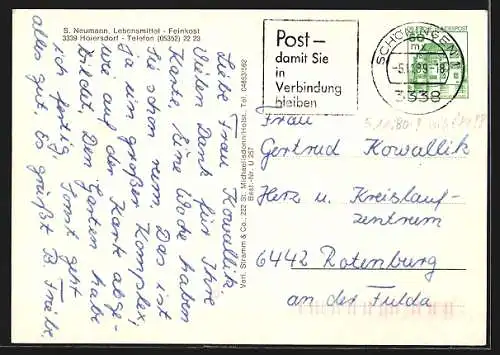 S. Neumann, Lebensmittel - Feinkost
3339 Hoiersdorf - Telefon (05352) 22 23
Liebe Frau Kowallik
Vielen Dank für Ihre
Karte. Eine Woche haben
Sie schon rum. Das ist
ja ein großer Komplex,
wie auf der Karte abge-
bildet. Den Garten habe
ich fertig. Sonst geht
alles gut. Es grüßt B. Friebe
Verl. Stramm & Co.; 222 St. Michaelisdonn/Holst. Tel. 04853/562
Best.-Nr. U 257
Post—
damit Sie
in
Verbindung
bleiben
SCHÖNINGEN 1
mx
3338
Frau
Gertrud Kowallik
Herz u. Kreislauf-
zentrum
6442 Rotenburg
an der Fulda